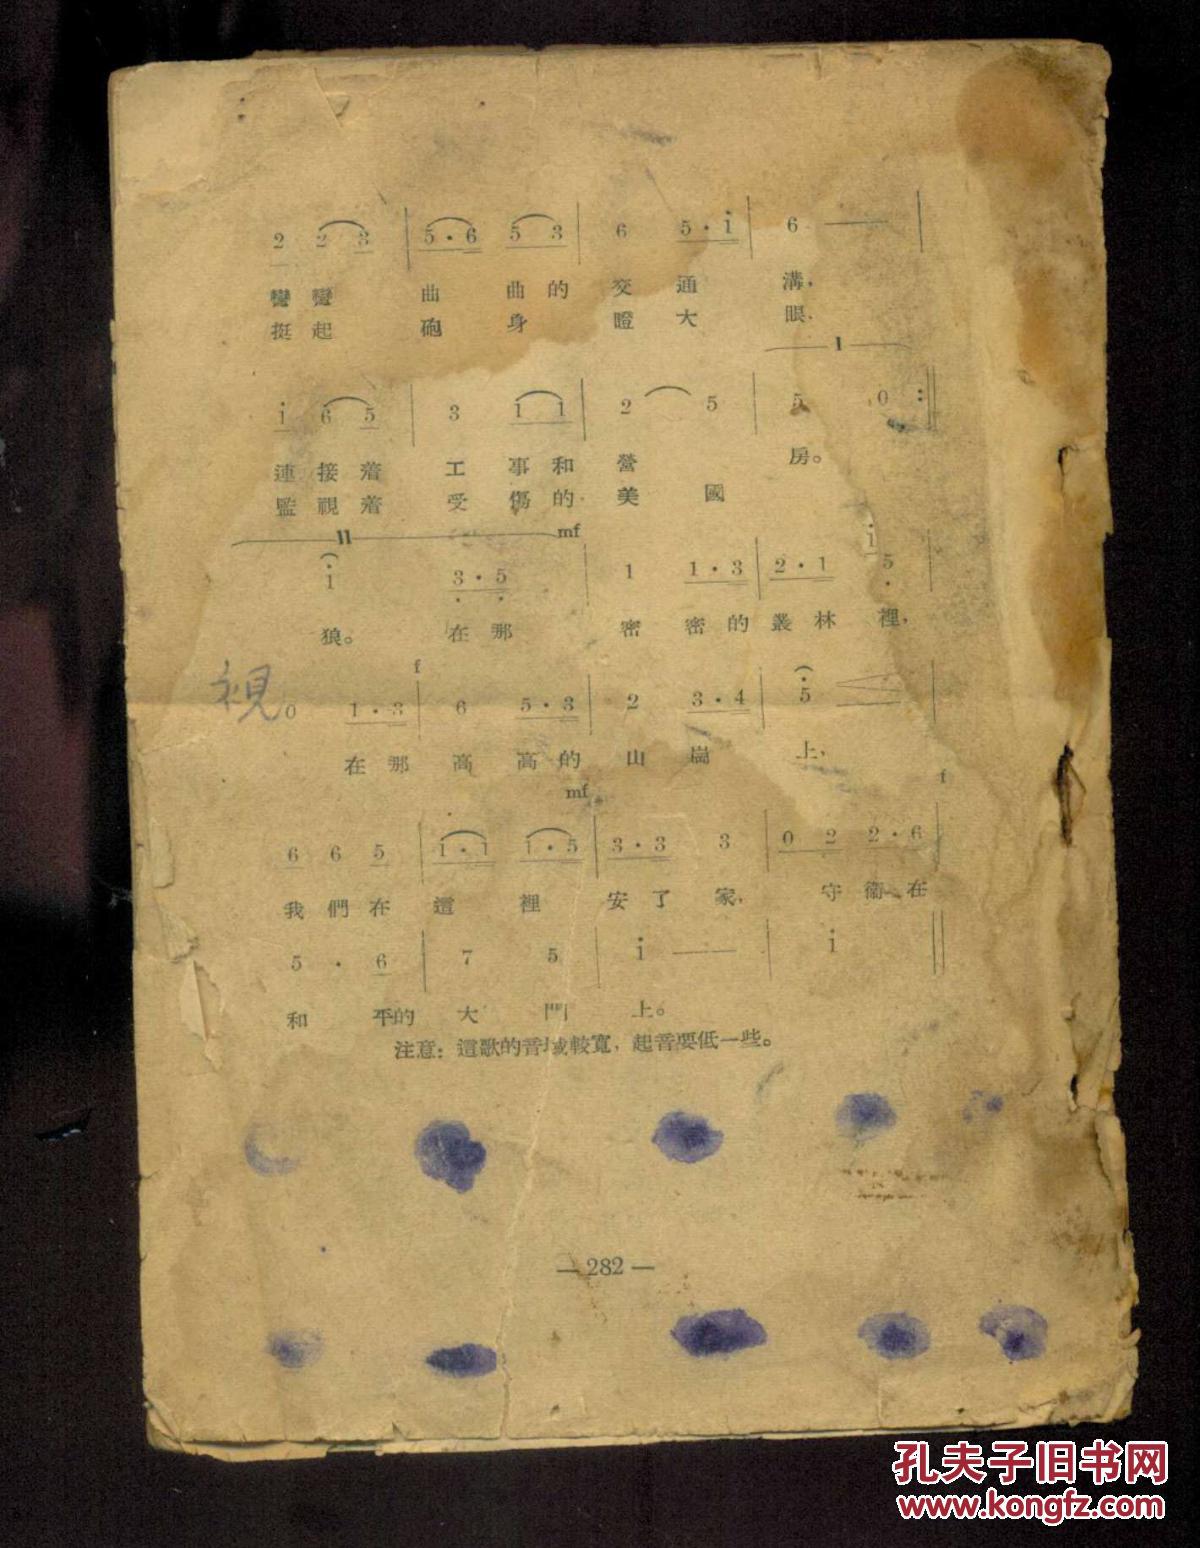 2 2 3 | 5·6 5 3 | 6 5·i | 6 —
彎彎 曲 曲的 交通 溝,
挺起 砲 身 瞪大 眼,
1
i 6 5 | 3 1 1 | 2 5 | 5 0 :‖
連接着 工事和 營 房。
監視着 受傷的 美 國
11 mf
i 3·5 | 1 1·3 | 2·1 5
i
狼。 在那 密 密的叢林 裡,
f
視
0 1·3 | 6 5·3 | 2 3·4 | 5
在那 高 高的 山 崗 上,
mf f
6 6 5 | 1·1 1·5 | 3·3 3 | 0 2 2·6
我們在 這 裡 安了 家, 守衛在
5·6 | 7 5 | i — | i ‖
和 平的 大 門 上。
注意:這歌的音域較寬,起音要低一些。
— 282 —
孔夫子旧书网
www.kongfz.com